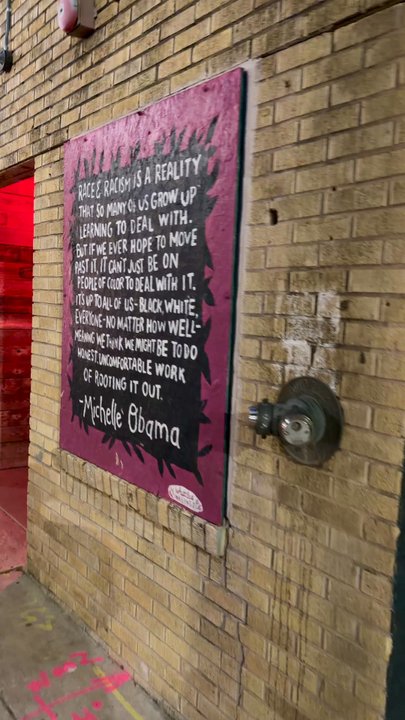 RACE & RACISM IS A REALITY
THAT SO MANY OF US GROW UP
LEARNING TO DEAL WITH.
BUT IF WE EVER HOPE TO MOVE
PAST IT, IT CAN'T JUST BE ON
PEOPLE OF COLOR TO DEAL WITH IT.
IT'S UP TO ALL OF US-BLACK, WHITE,
EVERYONE-NO MATTER HOW WELL-
MEANING WE THINK WE MIGHT BE TO DO
HONEST, UNCOMFORTABLE WORK
OF ROOTING IT OUT.
-Michelle Obama